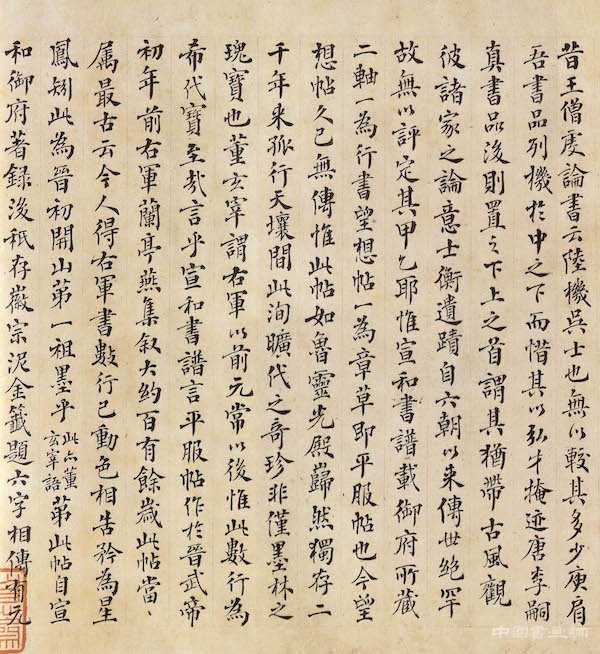 昔王僧虔論書云陸機吳士也無以較其多少庾肩
吾書品列機於中之下而惜其以弘才掩迹唐李嗣
真書品後則置之下上之首謂其猶帶古風觀
彼諸家之論意士衡遺蹟自六朝以來傳世絕罕
故無以評定其甲乙耶惟宣和書譜載御府所藏
二軸一為行書望想帖一為章草即平服帖也今望
想帖久已無傳惟此帖如魯靈光殿巋然獨存二
千年來孤行天壤間此洵曠代之奇珍非僅墨林之
瑰寶也董玄宰謂右軍以前元常以後惟此數行為
希代寶至哉言乎宣和書譜言平服帖作於晉武帝
初年前右軍蘭亭燕集敘大約百有餘歲此帖當、
屬最古云今人得右軍書數行已動色相告矜為星
鳳矧此為晉初開山第一祖墨乎此亦董玄宰語第此帖自宣
和御府著錄後祇存徽宗泥金籤題六字相傳有元
中國書畫網